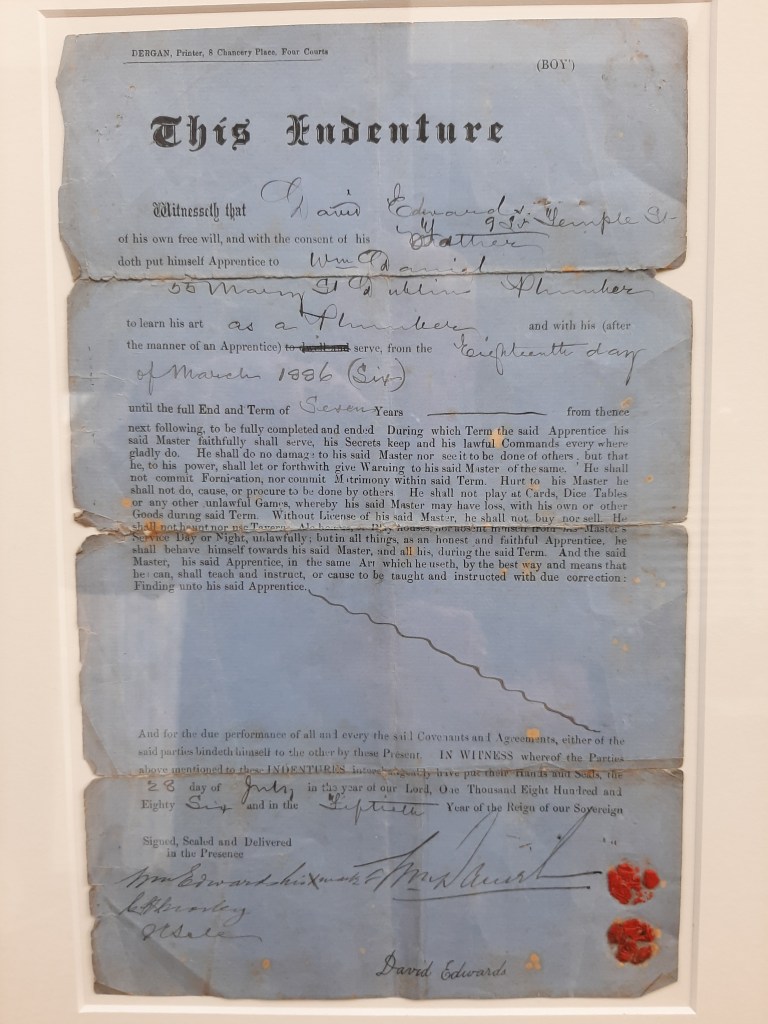 DERGAN, Printer, 8 Chancery Place, Four Courts
(BOY)
This Indenture
Witnesseth that David Edwards
Temple St
of his own free will, and with the consent of his Father
doth put himself Apprentice to Wm Daniel
55 Mary St Dublin Plumber
to learn his art as a Plumber and with his (after
the manner of an Apprentice) to dwell and serve, from the Eighteenth day
of March 1886 (Six)
until the full End and Term of Seven Years from thence
next following, to be fully completed and ended During which Term the said Apprentice his
said Master faithfully shall serve, his Secrets keep and his lawful Commands every where
gladly do. He shall do no damage to his said Master nor see it to be done of others, but that
he, to his power, shall let or forthwith give Warning to his said Master of the same. He shall
not commit Fornication, nor commit Matrimony within said Term. Hurt to his Master he
shall not do, cause, or procure to be done by others. He shall not play at Cards, Dice Tables
or any other unlawful Games, whereby his said Master may have loss, with his own or other
Goods during said Term. Without License of his said Master, he shall not buy nor sell. He
shall not haunt nor use Taverns, Ale-houses, or Play-houses, nor absent himself from his Master's
Service Day or Night, unlawfully; but in all things, as an honest and faithful Apprentice, he
shall behave himself towards his said Master, and all his, during the said Term. And the said
Master, his said Apprentice, in the same Art which he useth, by the best way and means that
he can, shall teach and instruct, or cause to be taught and instructed with due correction:
Finding unto his said Apprentice.
And for the due performance of all and every the said Covenants and Agreements, either of the
said parties bindeth himself to the other by these Present. IN WITNESS whereof the Parties
above mentioned to these INDENTURES interchangeably have put their Hands and Seals, the
28 day of July in the year of our Lord, One Thousand Eight Hundred and
Eighty Six and in the Fiftieth Year of the Reign of our Sovereign
Signed, Sealed and Delivered
in the Presence
Wm Edwards his X mark Wm Daniel
David Edwards